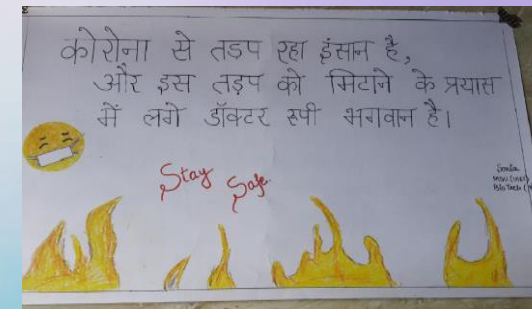 कोरोना से तड़प रहा इंसान है,
और इस तड़प को मिटाने के प्रयास
में लगे डॉक्टर रुपी भगवान है।
Stay Safe